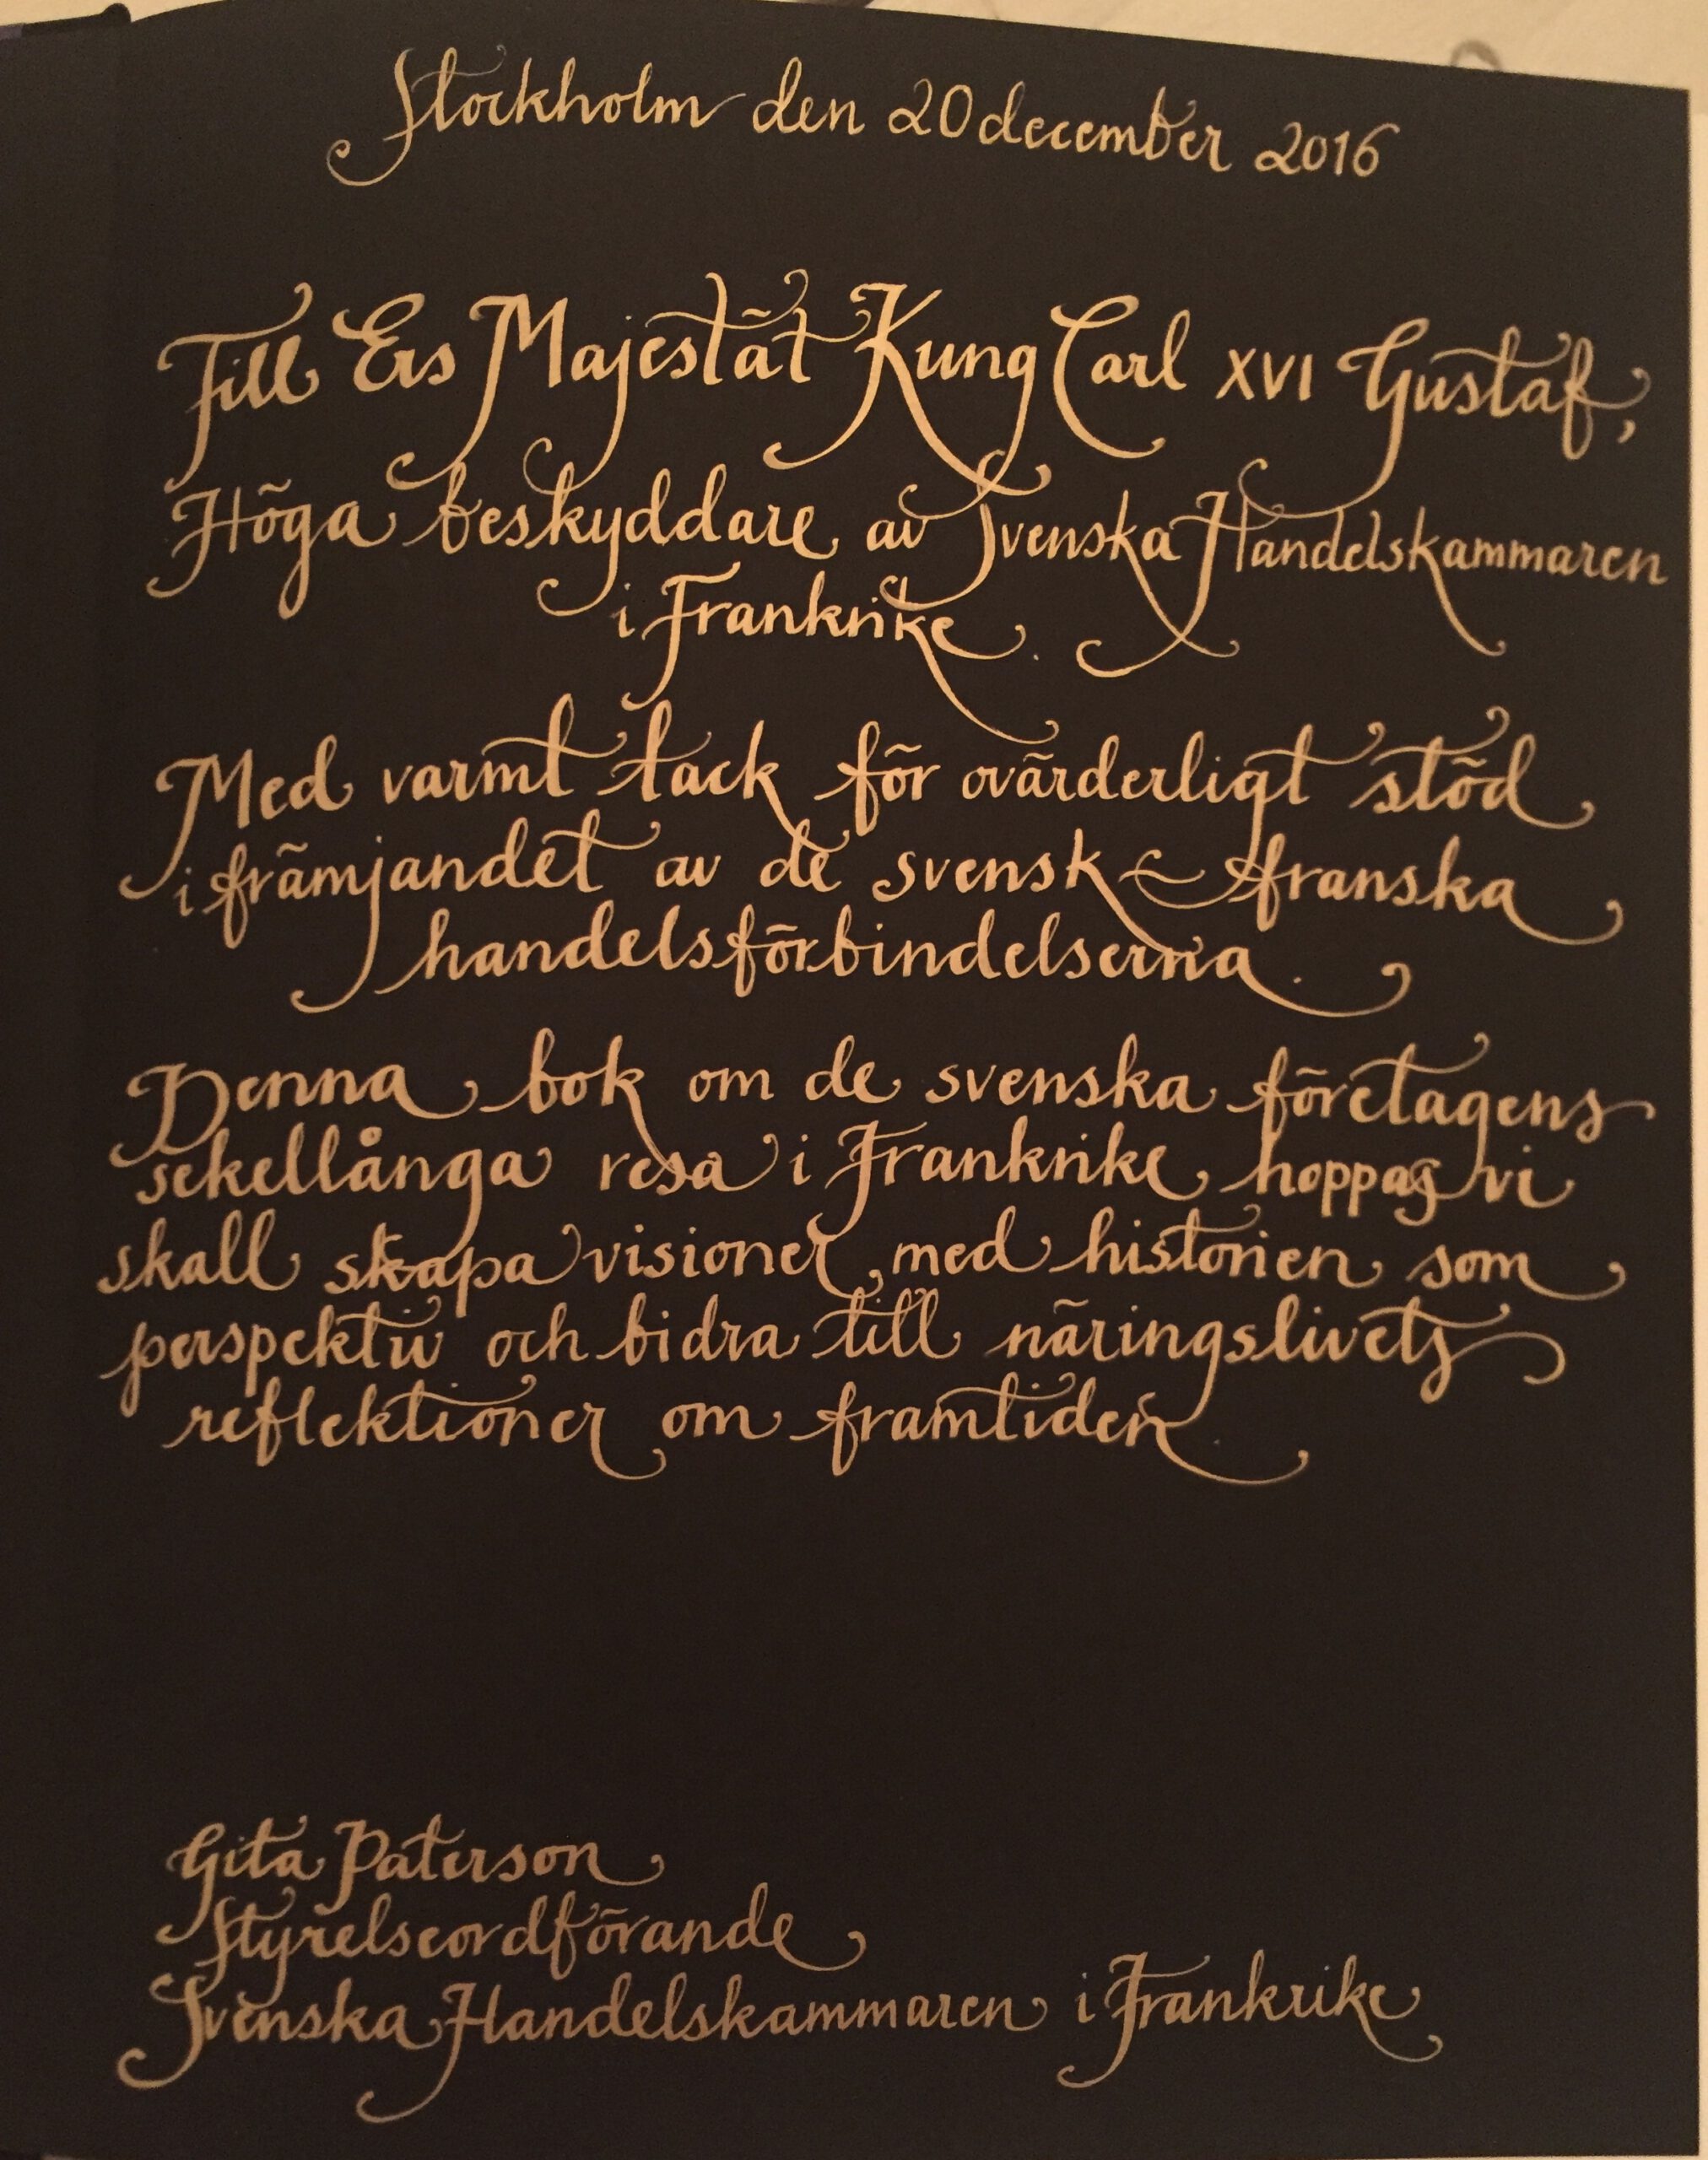 Stockholm den 20 december 2016
Till Ers Majestät Kung Carl XVI Gustaf,
Höga beskyddare av Svenska Handelskammaren
i Frankrike.
Med varmt tack för ovärderligt stöd
i främjandet av de svensk-franska
handelsförbindelserna.
Denna bok om de svenska företagens
sekellånga resa i Frankrike hoppas vi
skall skapa visioner, med historien som
perspektiv och bidra till näringslivets
reflektioner om framtiden.
Gita Paterson
Styrelseordförande
Svenska Handelskammaren i Frankrike